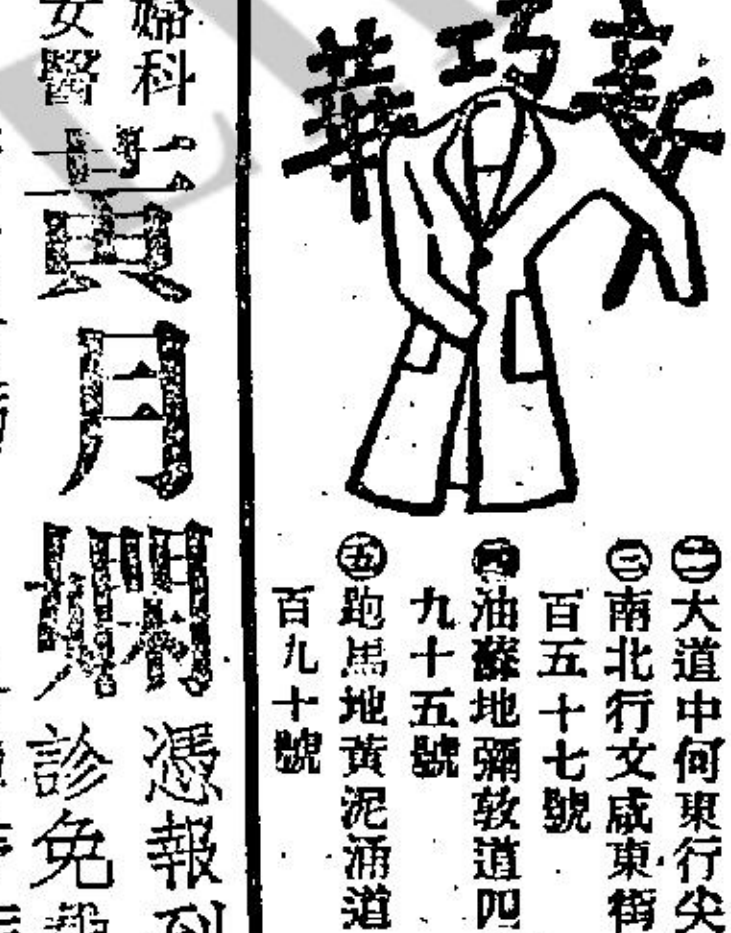 新巧華
㊁大道中何東行尖
㊂南北行文咸東街
百五十七號
㊃油蔴地彌敦道四
九十五號
㊄跑馬地黃泥涌道
百九十號
婦科
女醫
黃月嫻
憑報列
診免